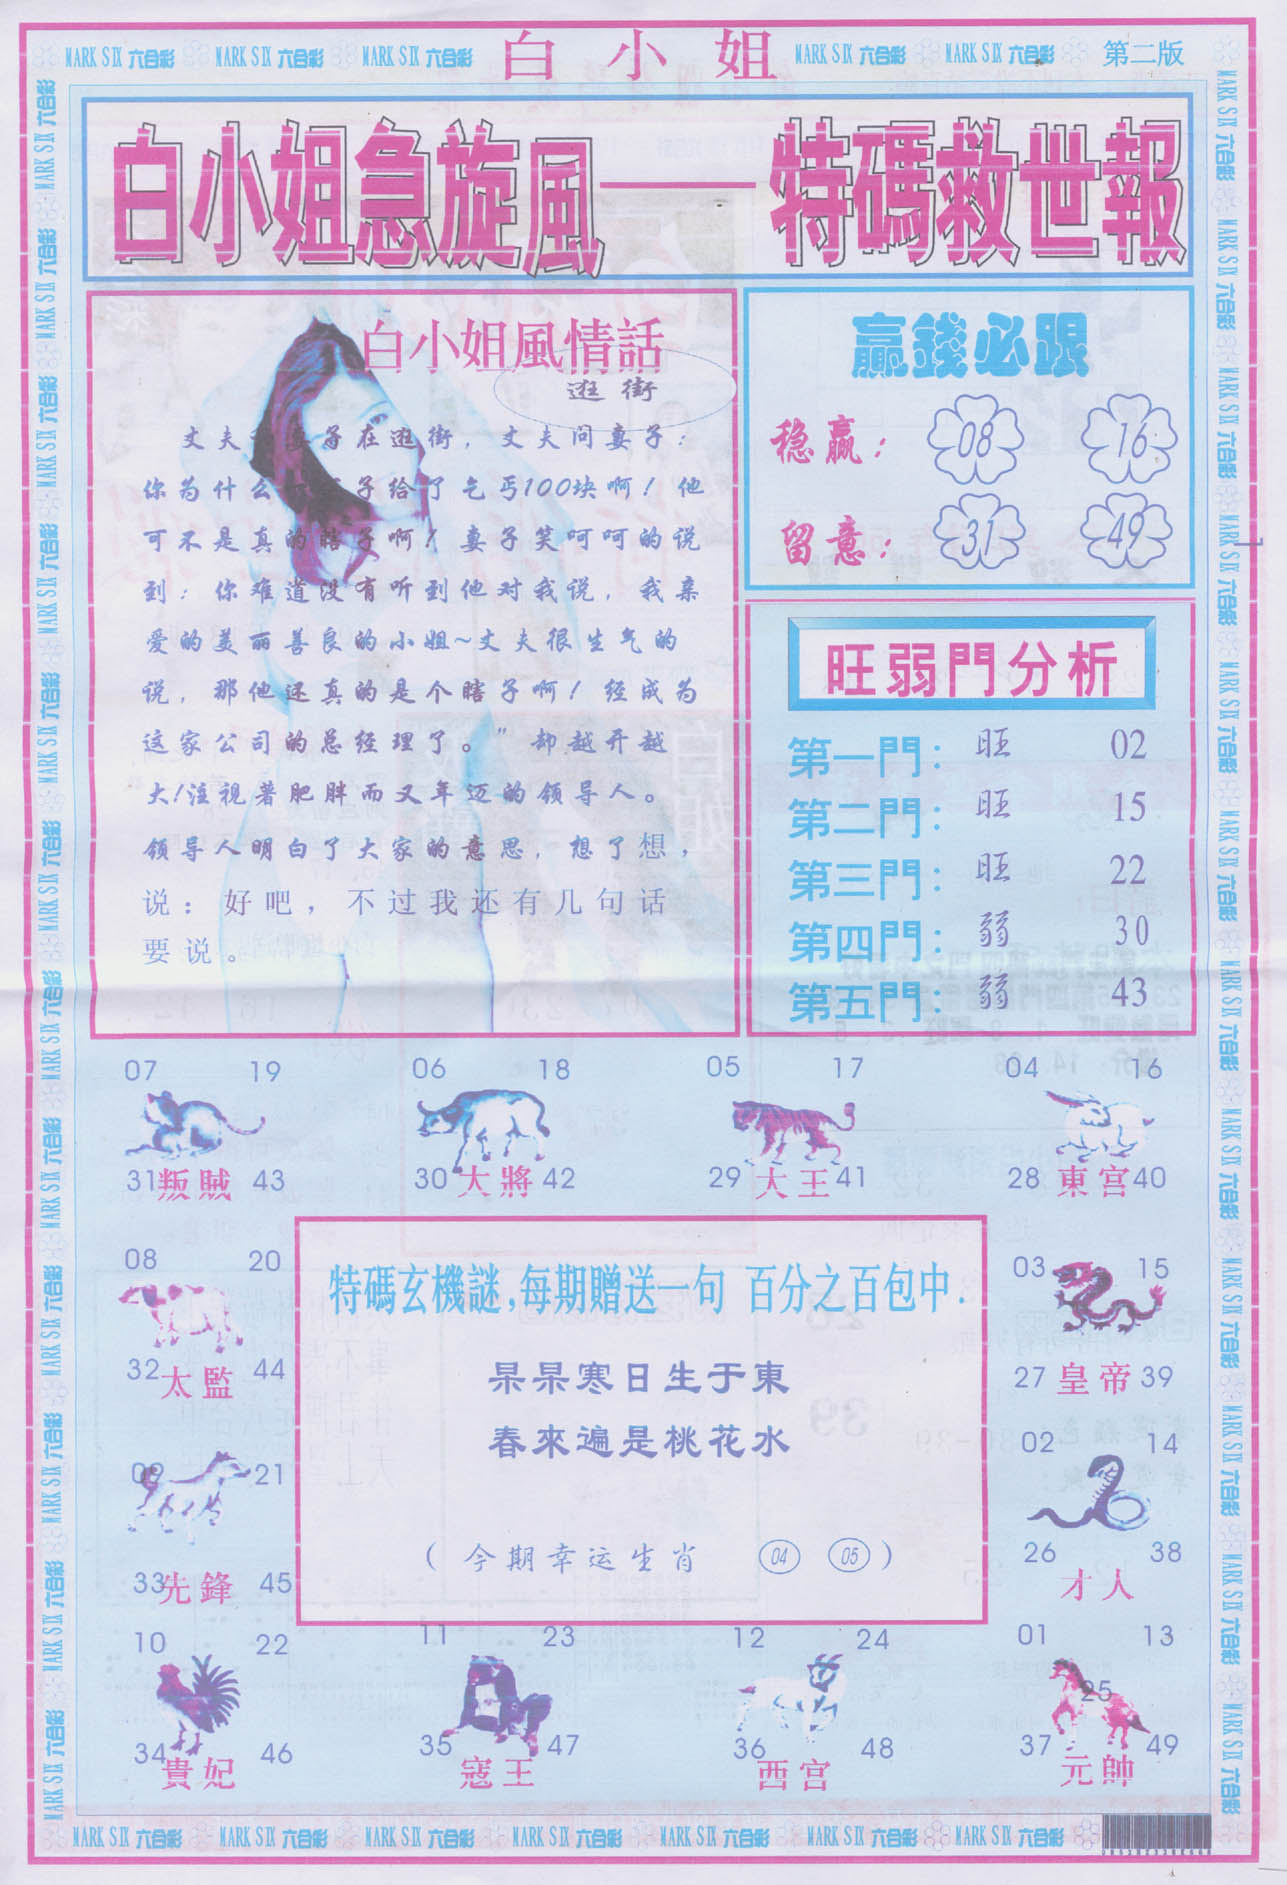 MARK SIX 六合彩 MARK SIX 六合彩 MARK SIX 六合彩 白小姐 MARK SIX 六合彩 MARK SIX 六合彩 第二版
白小姐急旋風——特碼救世報
白小姐風情話
逛街
丈夫 妻子在逛街，丈夫问妻子：
你为什么 子给了乞丐100块啊！他
可不是真的瞎子啊！妻子笑呵呵的说
到：你难道没有听到他对我说，我亲
爱的美丽善良的小姐~丈夫很生气的
说，那他还真的是个瞎子啊！经成为
这家公司的总经理了。”却越开越
大!注视著肥胖而又年迈的领导人。
领导人明白了大家的意思，想了想，
说：好吧，不过我还有几句话
要说。
贏錢必跟
稳赢： 08 16
留意： 31 49
旺弱門分析
第一門： 旺 02
第二門： 旺 15
第三門： 旺 22
第四門： 弱 30
第五門： 弱 43
07 19 06 18 05 17 04 16
31 叛賊 43 30 大將 42 29 大王 41 28 東宫 40
08 20
32 太監 44
09 21
33 先鋒 45
特碼玄機謎,每期贈送一句 百分之百包中.
杲杲寒日生于東
春來遍是桃花水
（今期幸运生肖 04 05）
03 15
27 皇帝 39
02 14
26 才人 38
10 22 11 23 12 24 01 13
25
34 貴妃 46 35 寇王 47 36 西宫 48 37 元帥 49
MARK SIX 六合彩 MARK SIX 六合彩 MARK SIX 六合彩 MARK SIX 六合彩 MARK SIX 六合彩 MARK SIX 六合彩 MARK SIX 六合彩